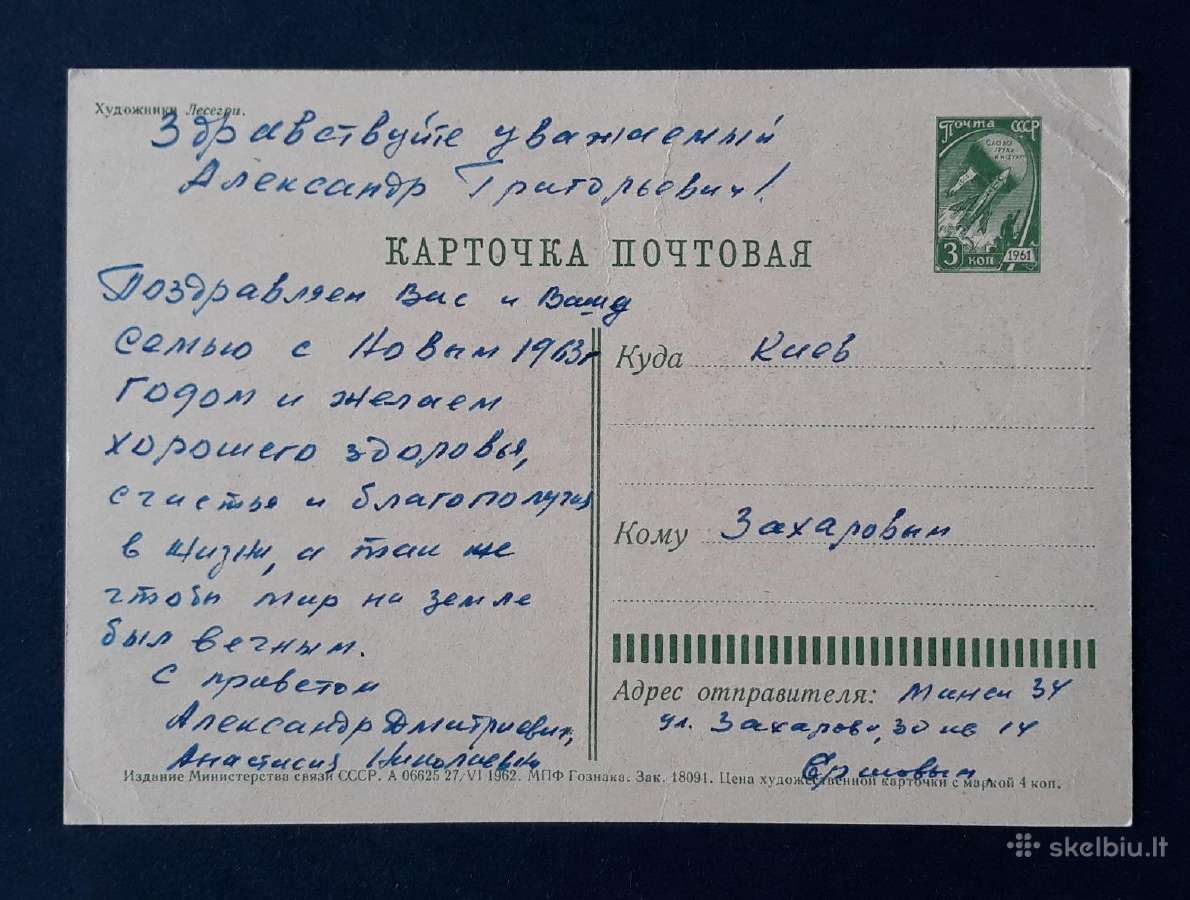 Художники Лесегри.
Здравствуйте уважаемый
Александр Григорьевич!
ПОЧТА СССР
СЛАВА
ТРУДУ
И НАУКЕ!
3 КОП
1961
КАРТОЧКА ПОЧТОВАЯ
Поздравляем Вас и Вашу
семью с Новым 1963г
годом и желаем
хорошего здоровья,
счастья и благополучия
в жизни, а так же
чтобы мир на земле
был вечным.
С приветом
Александр Дмитриевич,
Анастасия Николаевна
Куда Киев
Кому Захаровым
Адрес отправителя: Минск 34
ул. Захарова, 30 кв 14
Издание Министерства связи СССР. А 06625 27/VI 1962. МПФ Гознака. Зак. 18091. Цена художественной карточки с маркой 4 коп.
skelbiu.lt